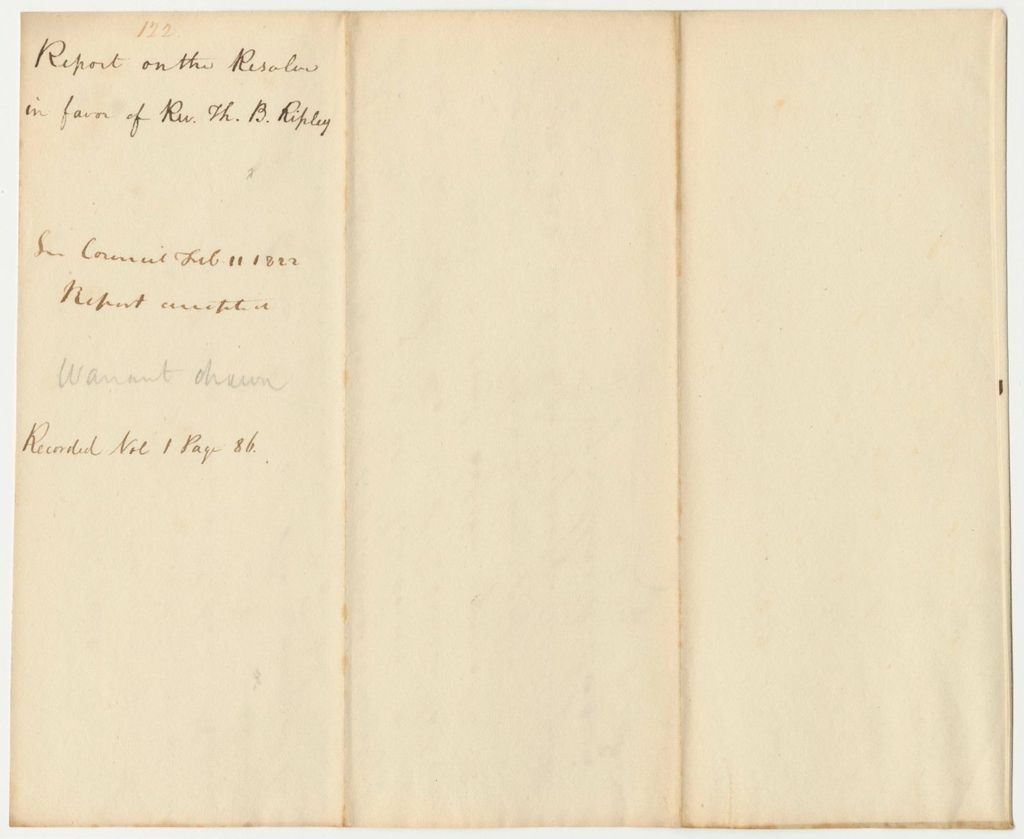 122.
Report on the Resolve
in favor of Rev. Th. B. Ripley
In Council Feb 11 1822
Report accepted
Warrant drawn
Recorded Vol 1 Page 86.